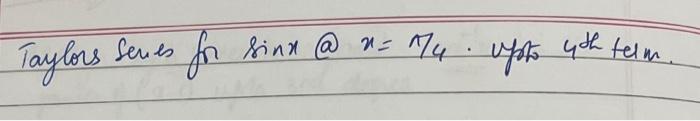 Taylors Series for sinx @ x = π/4 . upto 4th term.